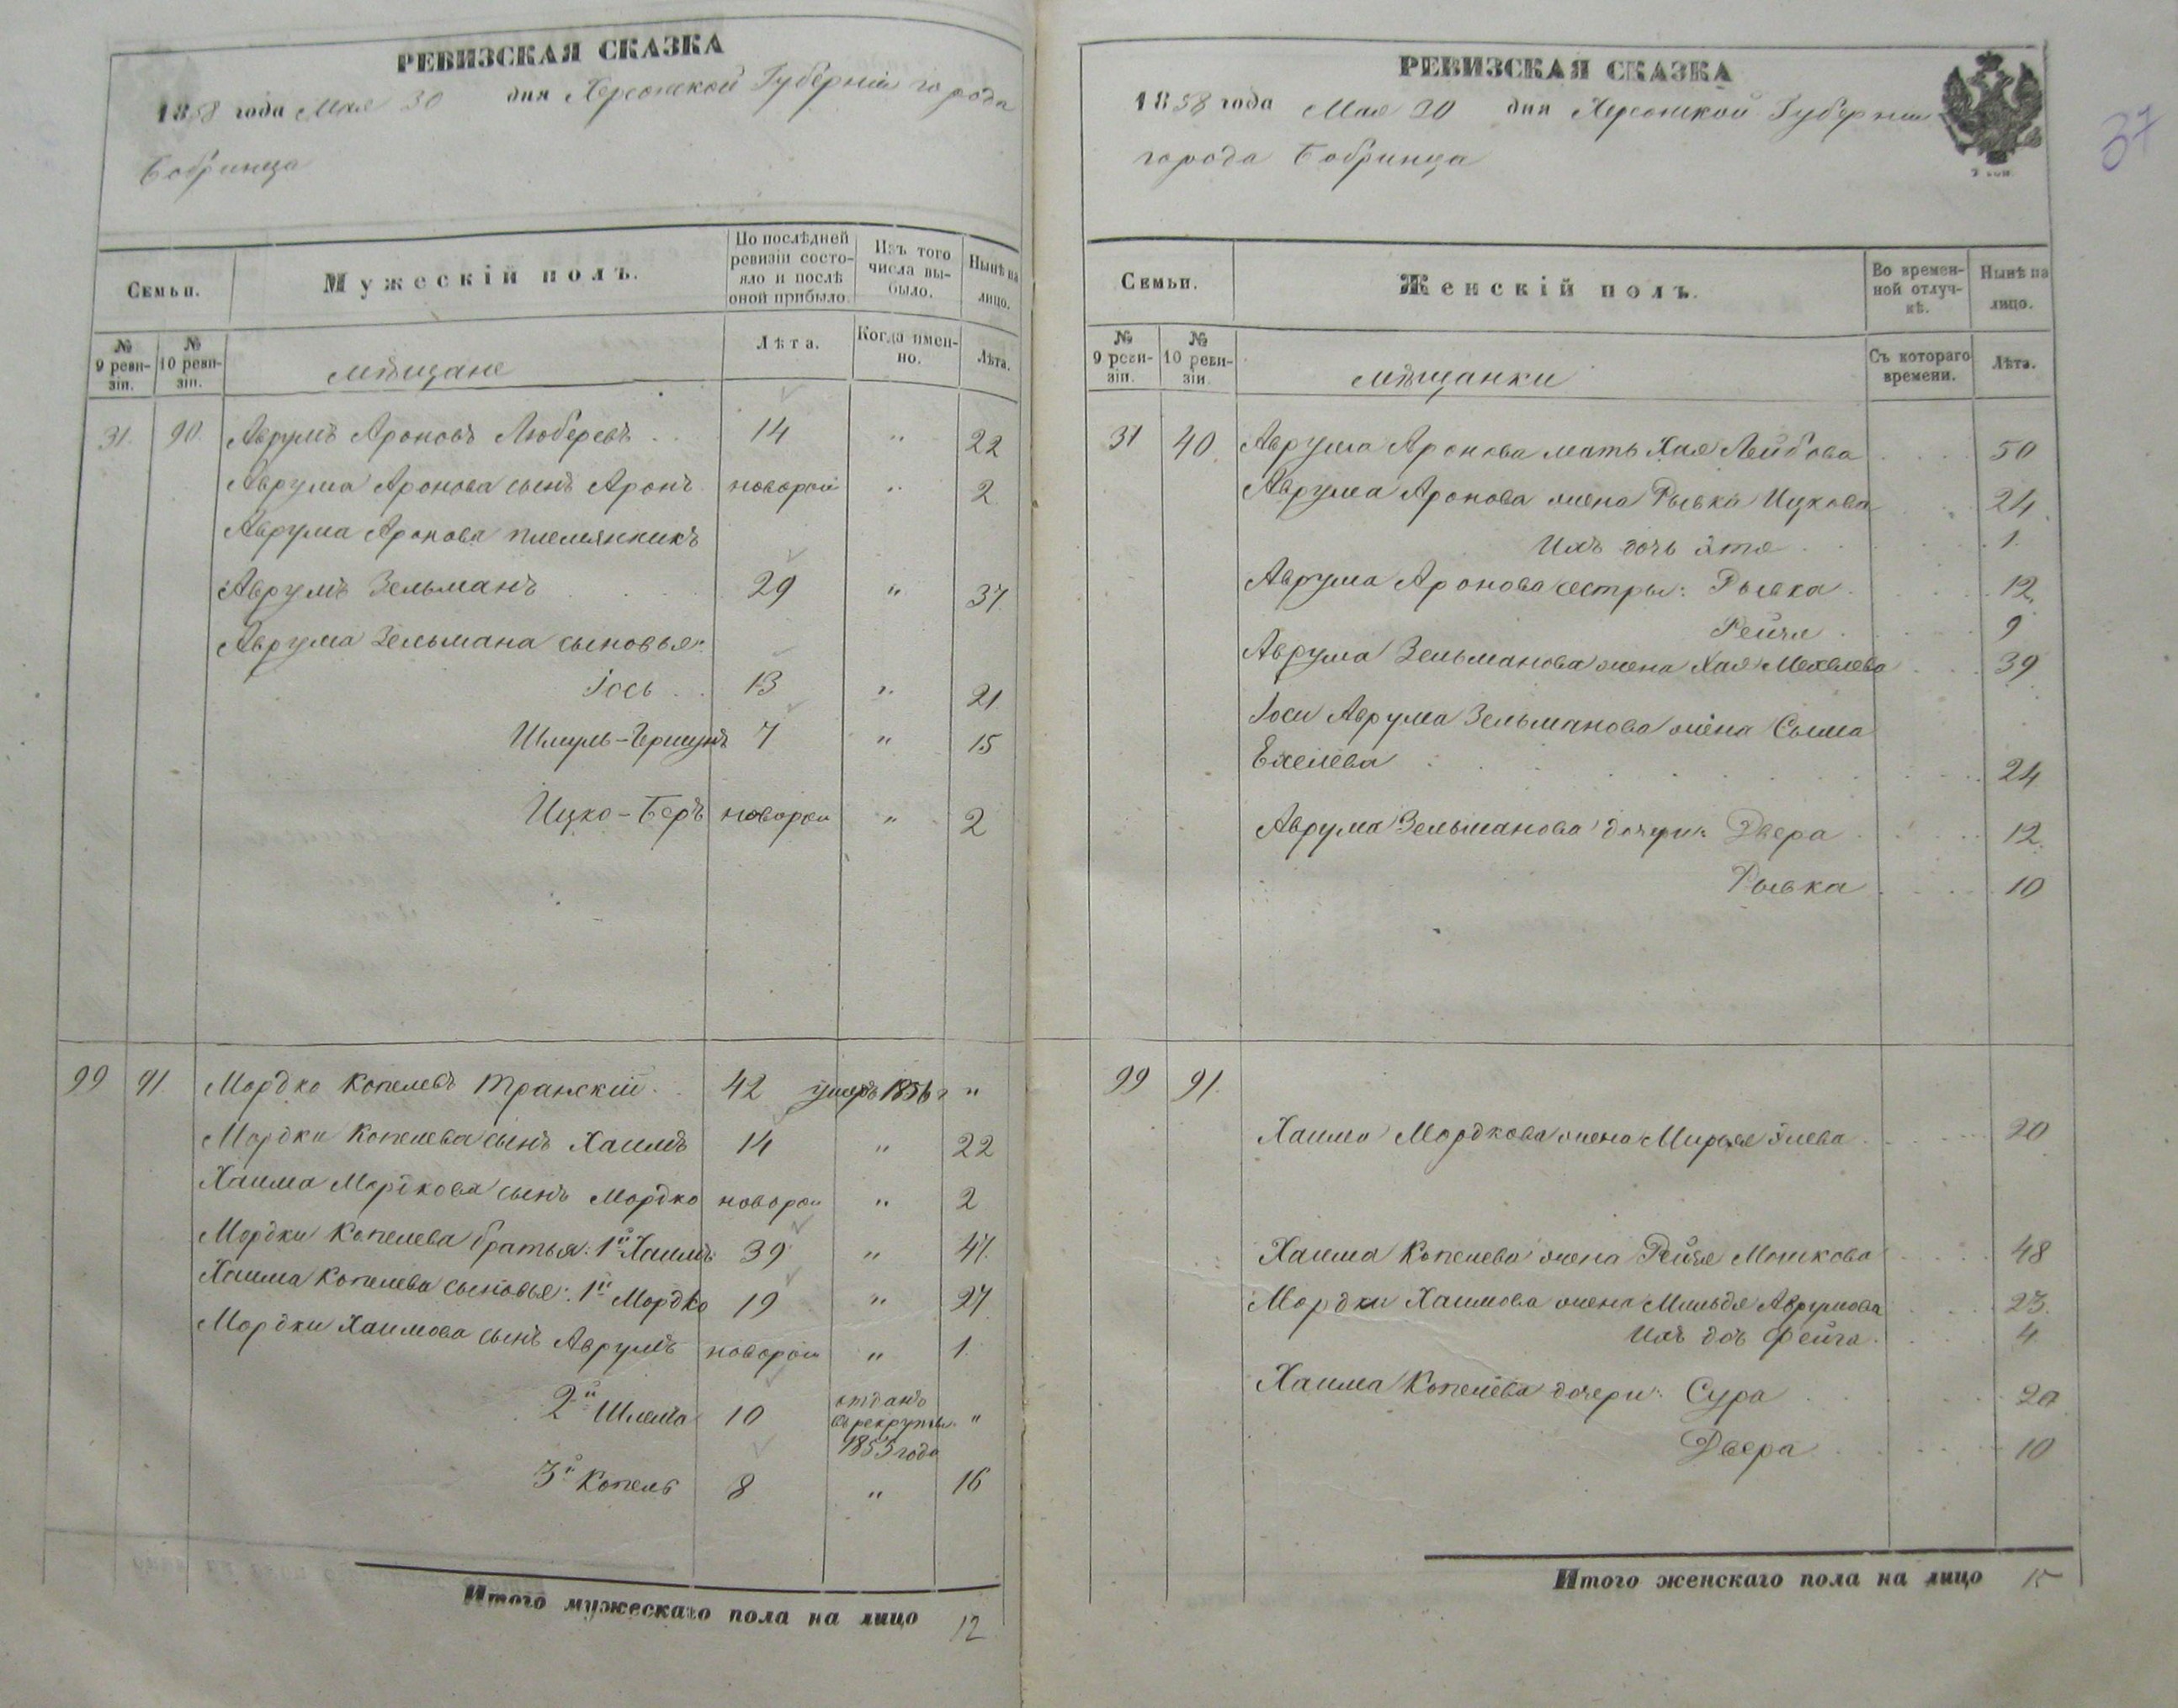 РЕВИЗСКАЯ СКАЗКА
1858 года Мая 30 дня Херсонской Губернiи города
Бобринца
Семьи.
Мужескiй полъ.
По послѣдней ревизiи состо-
яло и послѣ
оной прибыло.
Изъ того
числа вы-
было.
Нынѣ на
лицо.
№
9 реви-
зiи.
№
10 реви-
зiи.
мѣщане
Лѣта.
Когда имен-
но.
Лѣта.
31. 90. Аврумъ Ароновъ Люберевъ 14 " 22
Аврума Аронова сынъ Аронъ новорож " 2
Аврума Аронова племянникъ
Аврумъ Зельманъ 29 " 37
Аврума Зельмана сыновья:
Iось 13 " 21
Шмуль-Гершунъ 7 " 15
Ицко-Беръ новорож " 2
99 91. Мордко Копелевъ Транскiй 42 умеръ 1856 г "
Мордки Копелева сынъ Хаимъ 14 " 22
Хаима Мордкова сынъ Мордко новорож " 2
Мордки Копелева братья: 1й Хаимъ 39 " 47.
Хаима Копелева сыновья: 1й Мордко 19 " 27
Мордки Хаимова сынъ Аврумъ новорож " 1.
2й Шлема 10 отданъ
въ рекруты "
1855 года
3й Копель 8 " 16
Итого мужескаго пола на лицо 12
РЕВИЗСКАЯ СКАЗКА
1858 года Мая 30 дня Херсонской Губернiи
города Бобринца
37
Семьи.
Женскiй полъ.
Во времен-
ной отлуч-
кѣ.
Нынѣ на
лицо.
№
9 реви-
зiи.
№
10 реви-
зiи.
мѣщанки
Съ котораго
времени.
Лѣта.
31 40. Аврума Аронова мать Хая Лейбова 50
Аврума Аронова жена Рывка Ицкова 24
Ихъ дочь Этя 1.
Аврума Аронова сестры: Рывка 12
Рейзя 9
Аврума Зельманова жена Хая Мехелева 39
Iоси Аврума Зельманова жена Сыма
Ехелева 24
Аврума Зельманова дочери: Двера 12.
Рывка 10
99 91.
Хаима Мордкова жена Мирьям Элева 20
Хаима Копелева жена Рейзя Мошкова 48
Мордки Хаимова жена Мильдя Аврумова 23.
Ихъ дочь Фейга 4
Хаима Копелева дочери: Сура 20
Двера 10
Итого женскаго пола на лицо 15